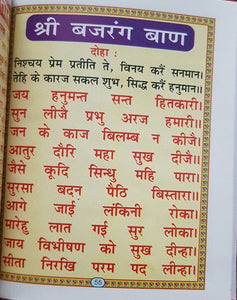 श्री बजरंग बाण
दोहा :
निश्चय प्रेम प्रतीति ते, विनय करैं सनमान।
तेहि के कारज सकल शुभ, सिद्ध करैं हनुमान॥
जय हनुमन्त सन्त हितकारी।
सुन लीजै प्रभु अरज हमारी॥
जन के काज बिलम्ब न कीजै।
आतुर दौरि महा सुख दीजै॥
जैसे कूदि सिन्धु महि पारा।
सुरसा बदन पैठि बिस्तारा॥
आगे जाई लंकिनी रोका।
मारेहु लात गई सुर लोका॥
जाय विभीषण को सुख दीन्हा।
सीता निरखि परम पद लीन्हा॥
55